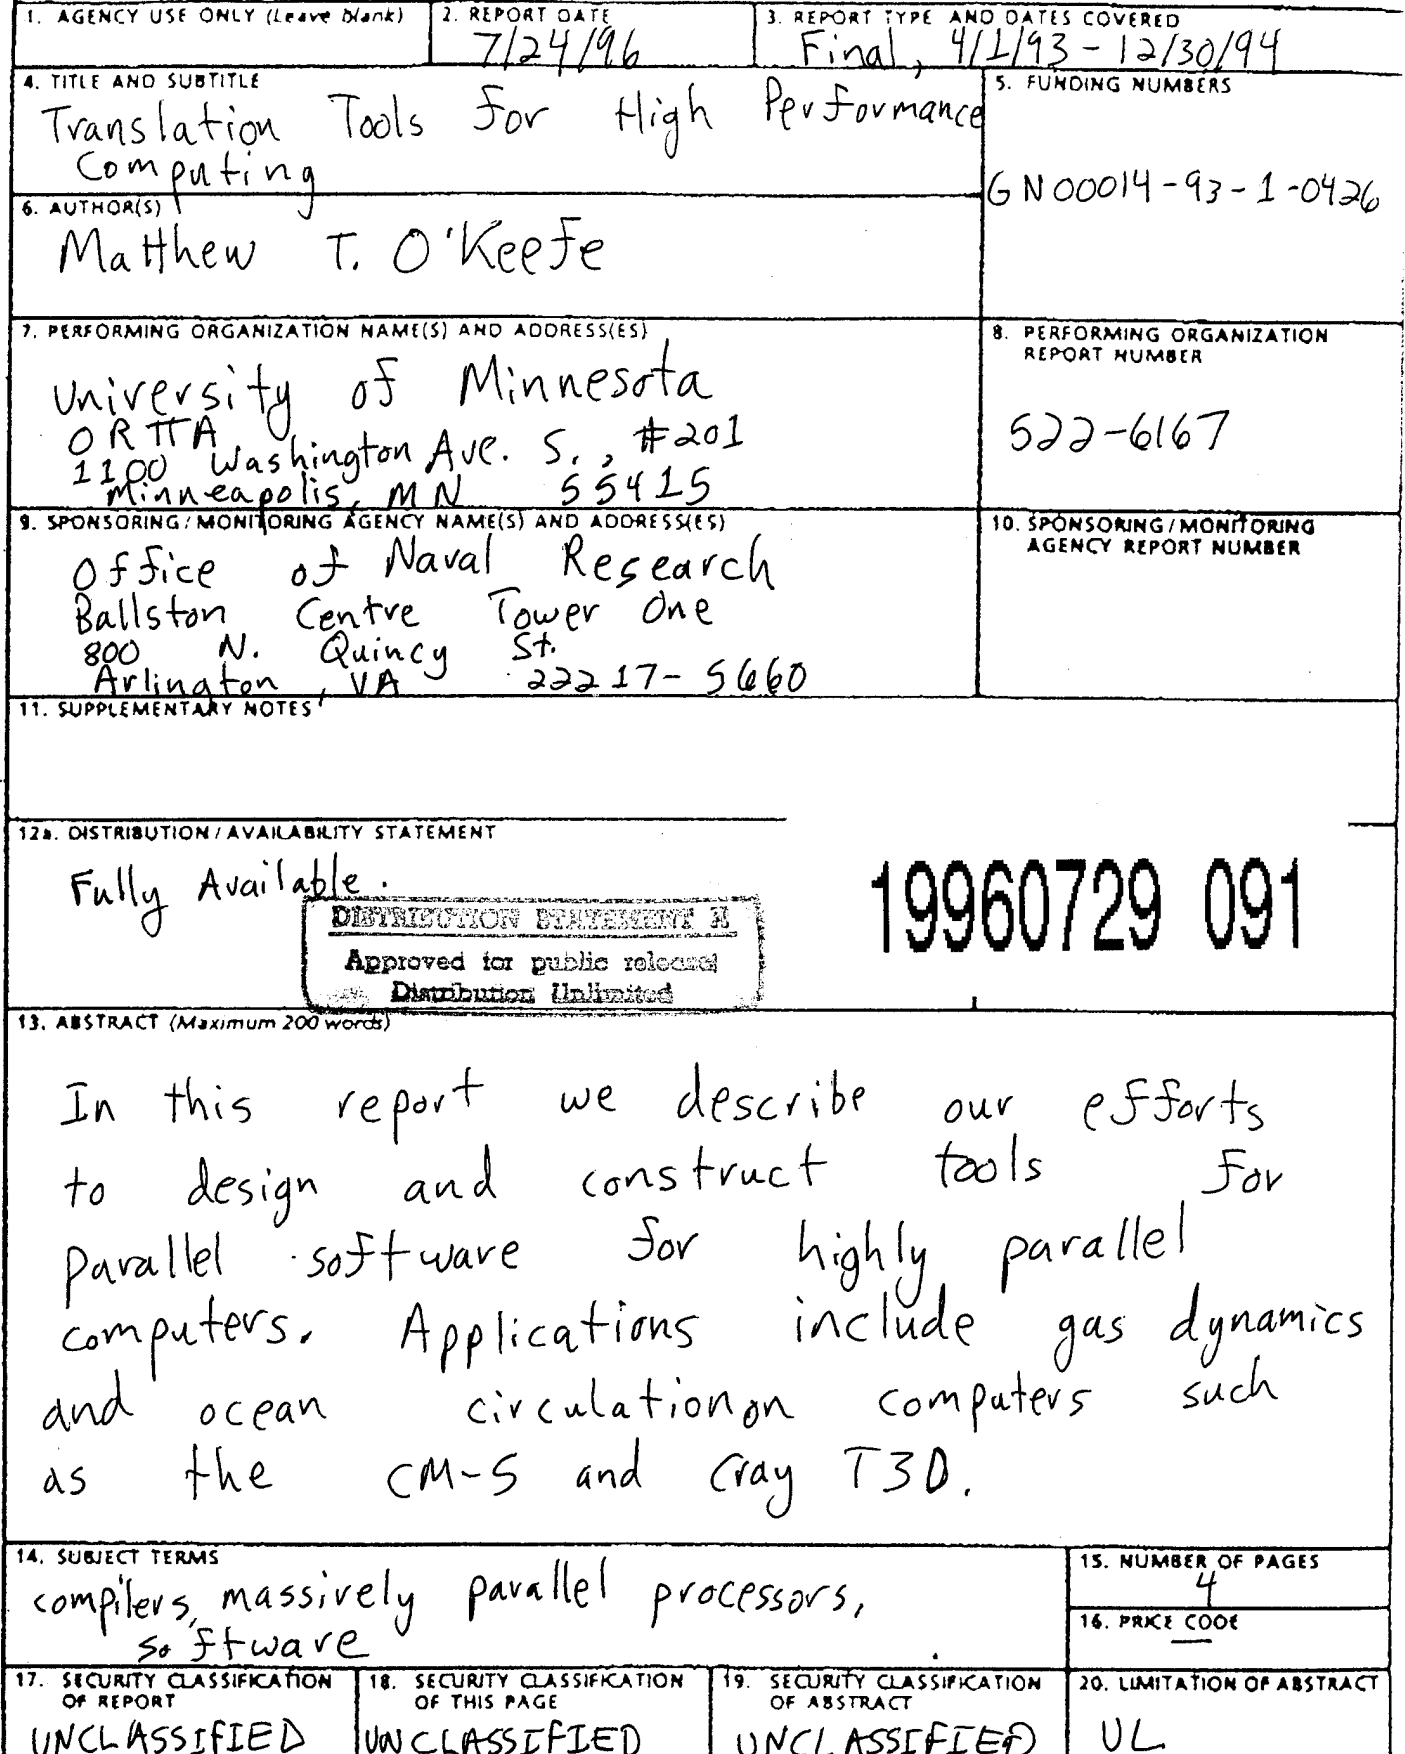 1. AGENCY USE ONLY (Leave blank)
2. REPORT DATE
7/24/96
3. REPORT TYPE AND DATES COVERED
Final, 4/1/93 - 12/30/94
4. TITLE AND SUBTITLE
Translation Tools for High Performance
Computing
5. FUNDING NUMBERS
G N00014-93-1-0426
6. AUTHOR(S)
Matthew T. O'Keefe
7. PERFORMING ORGANIZATION NAME(S) AND ADDRESS(ES)
University of Minnesota
ORTTA
1100 Washington Ave. S., #201
Minneapolis, MN 55415
8. PERFORMING ORGANIZATION
REPORT NUMBER
522-6167
9. SPONSORING/MONITORING AGENCY NAME(S) AND ADDRESS(ES)
Office of Naval Research
Ballston Centre Tower One
800 N. Quincy St.
Arlington, VA 22217-5660
10. SPONSORING/MONITORING
AGENCY REPORT NUMBER
11. SUPPLEMENTARY NOTES
12a. DISTRIBUTION/AVAILABILITY STATEMENT
Fully Available.
DISTRIBUTION STATEMENT A
Approved for public release;
Distribution Unlimited
19960729 091
13. ABSTRACT (Maximum 200 words)
In this report we describe our efforts
to design and construct tools for
parallel software for highly parallel
computers. Applications include gas dynamics
and ocean circulation on computers such
as the CM-5 and Cray T3D.
14. SUBJECT TERMS
compilers, massively parallel processors,
software
15. NUMBER OF PAGES
4
16. PRICE CODE
17. SECURITY CLASSIFICATION
OF REPORT
UNCLASSIFIED
18. SECURITY CLASSIFICATION
OF THIS PAGE
UNCLASSIFIED
19. SECURITY CLASSIFICATION
OF ABSTRACT
UNCLASSIFIED
20. LIMITATION OF ABSTRACT
UL